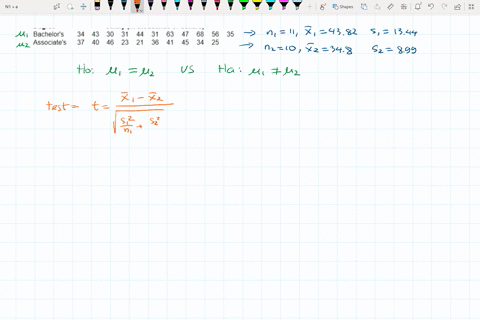 μ1 Bachelor's 34 43 30 31 44 31 63 47 68 56 35 → n1 = 11, x̄1 = 43.82 s1 = 13.44
μ2 Associate's 37 40 46 23 21 36 41 45 34 25 → n2 = 10, x̄2 = 34.8 s2 = 8.99
Ho: μ1 = μ2 vs Ha: μ1 ≠ μ2
test = t = x̄1 - x̄2 / √ s1²/n1 + s2²